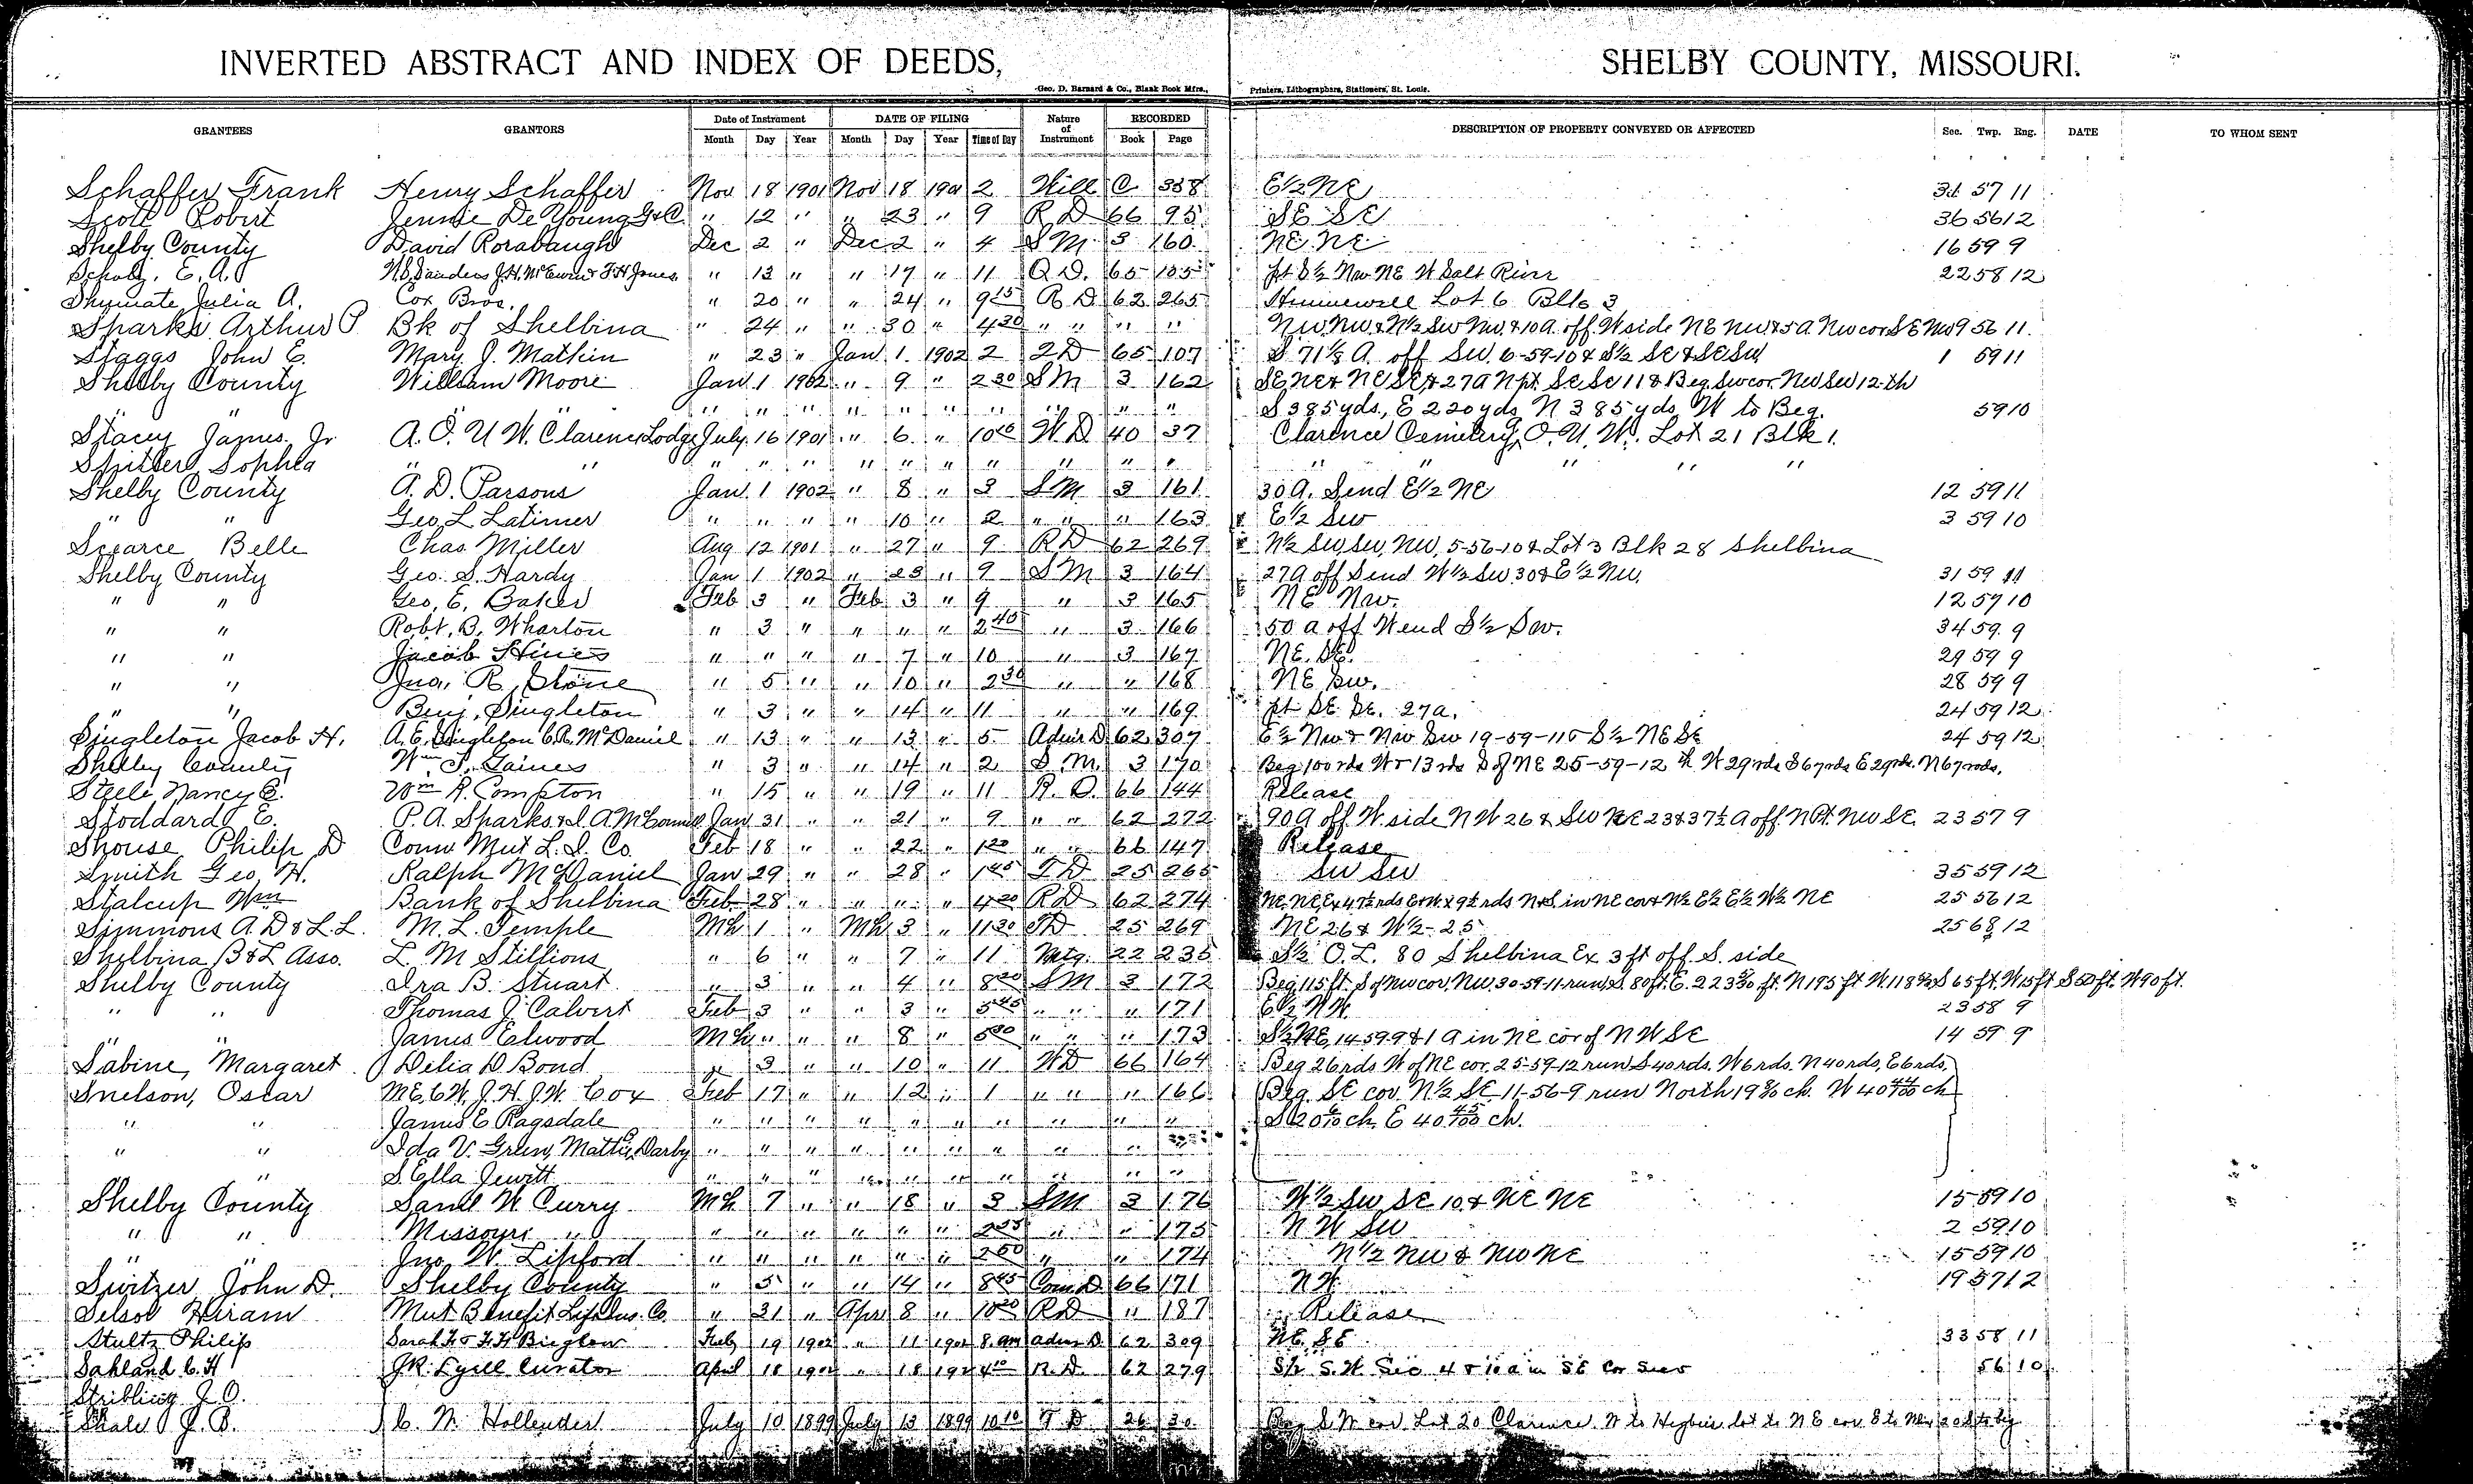 INVERTED ABSTRACT AND INDEX OF DEEDS, SHELBY COUNTY, MISSOURI.
Geo. D. Barnard & Co., Blank Book Mfrs., Printers, Lithographers, Stationers, St. Louis.
GRANTEES GRANTORS Date of Instrument DATE OF FILING Nature of Instrument RECORDED DESCRIPTION OF PROPERTY CONVEYED OR AFFECTED Sec. Twp. Rng. DATE TO WHOM SENT
Month Day Year Month Day Year Time of Day Book Page
Schaffer Frank Henry Schaffer Nov 18 1901 Nov 18 1901 2 Will C 338 E½ NE 57 11
Scott Robert Jennie De Young G&C " 12 " " 23 " 9 R D 66 95 SE SE 36 56 12
Shelby County David Rorabaugh Dec 2 " Dec 2 " 4 S M 3 160 NE NE 16 59 9
E. A. " 13 " " 17 " 11 Q D. 65 105 pt S½ Nw NE W Salt River 22 58 12
Julia A. Cox Bros. " 20 " " 24 " 9 15 R D 62 265 Hunnewell Lot 6 Blk 3
Sparks Arthur P Bk of Shelbina " 24 " " 30 " 4 30 " " " " NW NW & N½ SW NW & 10 a. off W side NE NW & 5 A. NW cor SE NW 9 56 11
Staggs John E. Mary J. Mathin " 23 " Jan 1 1902 2 2 D 65 107 S 71 A. off SW. 6-59-10 & S½ SE & SE SW 1 59 11
Shelby County William Moore Jan 1 1902 " 9 " 2 30 S M 3 162 SE NE & NE SE & 27 a N pt. SE SE 11 & Beg. SW cor. NW SW 12 th
" " " " " " " " " " S 385 yds., E 220 yds N 385 yds, W to Beg. 59 10
Stacey James Jr A. O. U. W. Clarence Lodge July 16 1901 " 6 " 10 W D 40 37 Clarence Cemetery O. U. W. Lot 21 Blk 1.
Sophia " " " " " " " " " " " " " " " "
Shelby County A. D. Parsons Jan 1 1902 " 8 " 3 S M 3 161 30 A. S end E½ NE 12 59 11
" " Geo L Latimer " " " " 10 " 2 " " " 163 E½ SW 3 59 10
Scearce Belle Chas Miller Aug 12 1901 " 27 " 9 R D 62 269 N½ SW, SW, NW, 5-56-10 & Lot 3 Blk 28 Shelbina
Shelby County Geo. S. Hardy Jan 1 1902 " " 9 S M 3 164 27 a off S end W½ SW 30 & E½ NW. 31 59 11
" " Geo. E. Baker Feb 3 " Feb 3 " 9 " 3 165 NE NW. 12 59 10
" " Robt. B. Wharton " 3 " " " " 2 40 " 3 166 50 a off W end S½ SW. 34 59 9
" " Jacob Hines " " " " 7 " 10 " 3 167 NE. SE. 29 59 9
" " Jno. R. Stone " 5 " " 10 " 2 30 " " 168 NE SW. 28 59 9
" " Benj. Singleton " 3 " " 14 " 11 " " 169 pt SE. SE. 27 a. 24 59 12
Singleton Jacob H. A. E. Singleton C. R. McDaniel " 13 " " 13 " 5 Admr D 62 307 E½ NW & NW SW 19-59-11 & S½ NE SE 24 59 12
Shelby County Wm. Gaines " 3 " " 14 " 2 S. M. 3 170 Beg 100 rds W & 13 rds S of NE 25-59-12 th W 29 rds S 67 rds E 29 rds. N 67 rods.
Steele Nancy E. Wm R. Compton " 15 " " 19 " 11 R. D. 66 144 Release
Stoddard E. P. A. Sparks & Jan 31 " " 21 " 9 " " 62 272 90 a off W side NW 26 & SW NE 23 & 37½ a off N Pt. NW SE. 23 57 9
Shouse Philip D Conn Mut L. I. Co. Feb 18 " " 22 " 1 20 " " 66 147 Release
Smith Geo. H. Ralph McDaniel Jan 29 " " 28 " 1 45 T D 25 265 SW SW 35 59 12
Stalcup Wm Bank of Shelbina Feb 28 " " " " 4 20 R D 62 274 25 56 12
Simmons A. D & L. L. M. L. Temple Mch 1 " Mch 3 " 11 30 T D 25 269 NE 26 & W½ 25 25 12
Shelbina B & L Asso. L. M Stillions " 6 " " 7 " 11 Mtg. 22 235 S½ O. L. 80 Shelbina Ex 3 ft off S. side
Shelby County Ira B. Stuart " 3 " " 4 " 8 30 S M 3 172
" " Thomas J. Calvert Feb 3 " " 3 " 3 45 " " " 171 E½ NW 23 58 9
" " James Ealwood Mch " " " 8 " 5 30 " " " 173 S½ NE, 14 59 9 & 1 A in NE cor of NW SE 14 59 9
Sabine, Margaret Delia D. Bond " 3 " " 10 " 11 W D 66 164 Beg 26 rds W of NE cor. 25-59-12 run S 40 rds. W 6 rds. N 40 rds, E 6 rds,
Snelson, Oscar M. E, C. W, J. H. J. W. Cox Feb 17 " " 12 " 1 " " " 166 Beg. SE cor. N½ SE 11-56-9 run North ch. W ch
" " James E Ragsdale " " " " " " " " " " S ch, E ch.
" " Ida V. Green, Mattie Darby " " " " " " " " "
" S. Ella Jewitt " " " " " " " "
Shelby County Saml W Curry Mch 7 " " 18 " 3 S M 3 176 W½ SW SE 10 & NE NE 15 59 10
" " Missouri " " " " " " " 2 55 " " 175 NW SW 2 59 10
" " Jno W. Lipford " " " " " " 2 50 " " 174 N½ NW & NW NE 15 59 10
Switzer John D. Shelby County " 5 " " 14 " 8 45 Com D. 66 171 NW 19 57 12
Selsor Hiram Mut Benefit Life Ins. Co. " 31 " Apr 8 " 10 20 R D " 187 Release
Stultz Philip Sarah F & F. H Bieglow Feb 19 1902 " 11 1902 8 am Admr D. 62 309 NE. SE 33 58 11
Sahland C. H J. R. Lyell Curator April 18 1902 " 18 1902 R. D. 62 279 56 10
Stribling J. O.
Shale J. B. C. N. Hollender July 10 1899 July 13 1899 10 10 T D 26 30